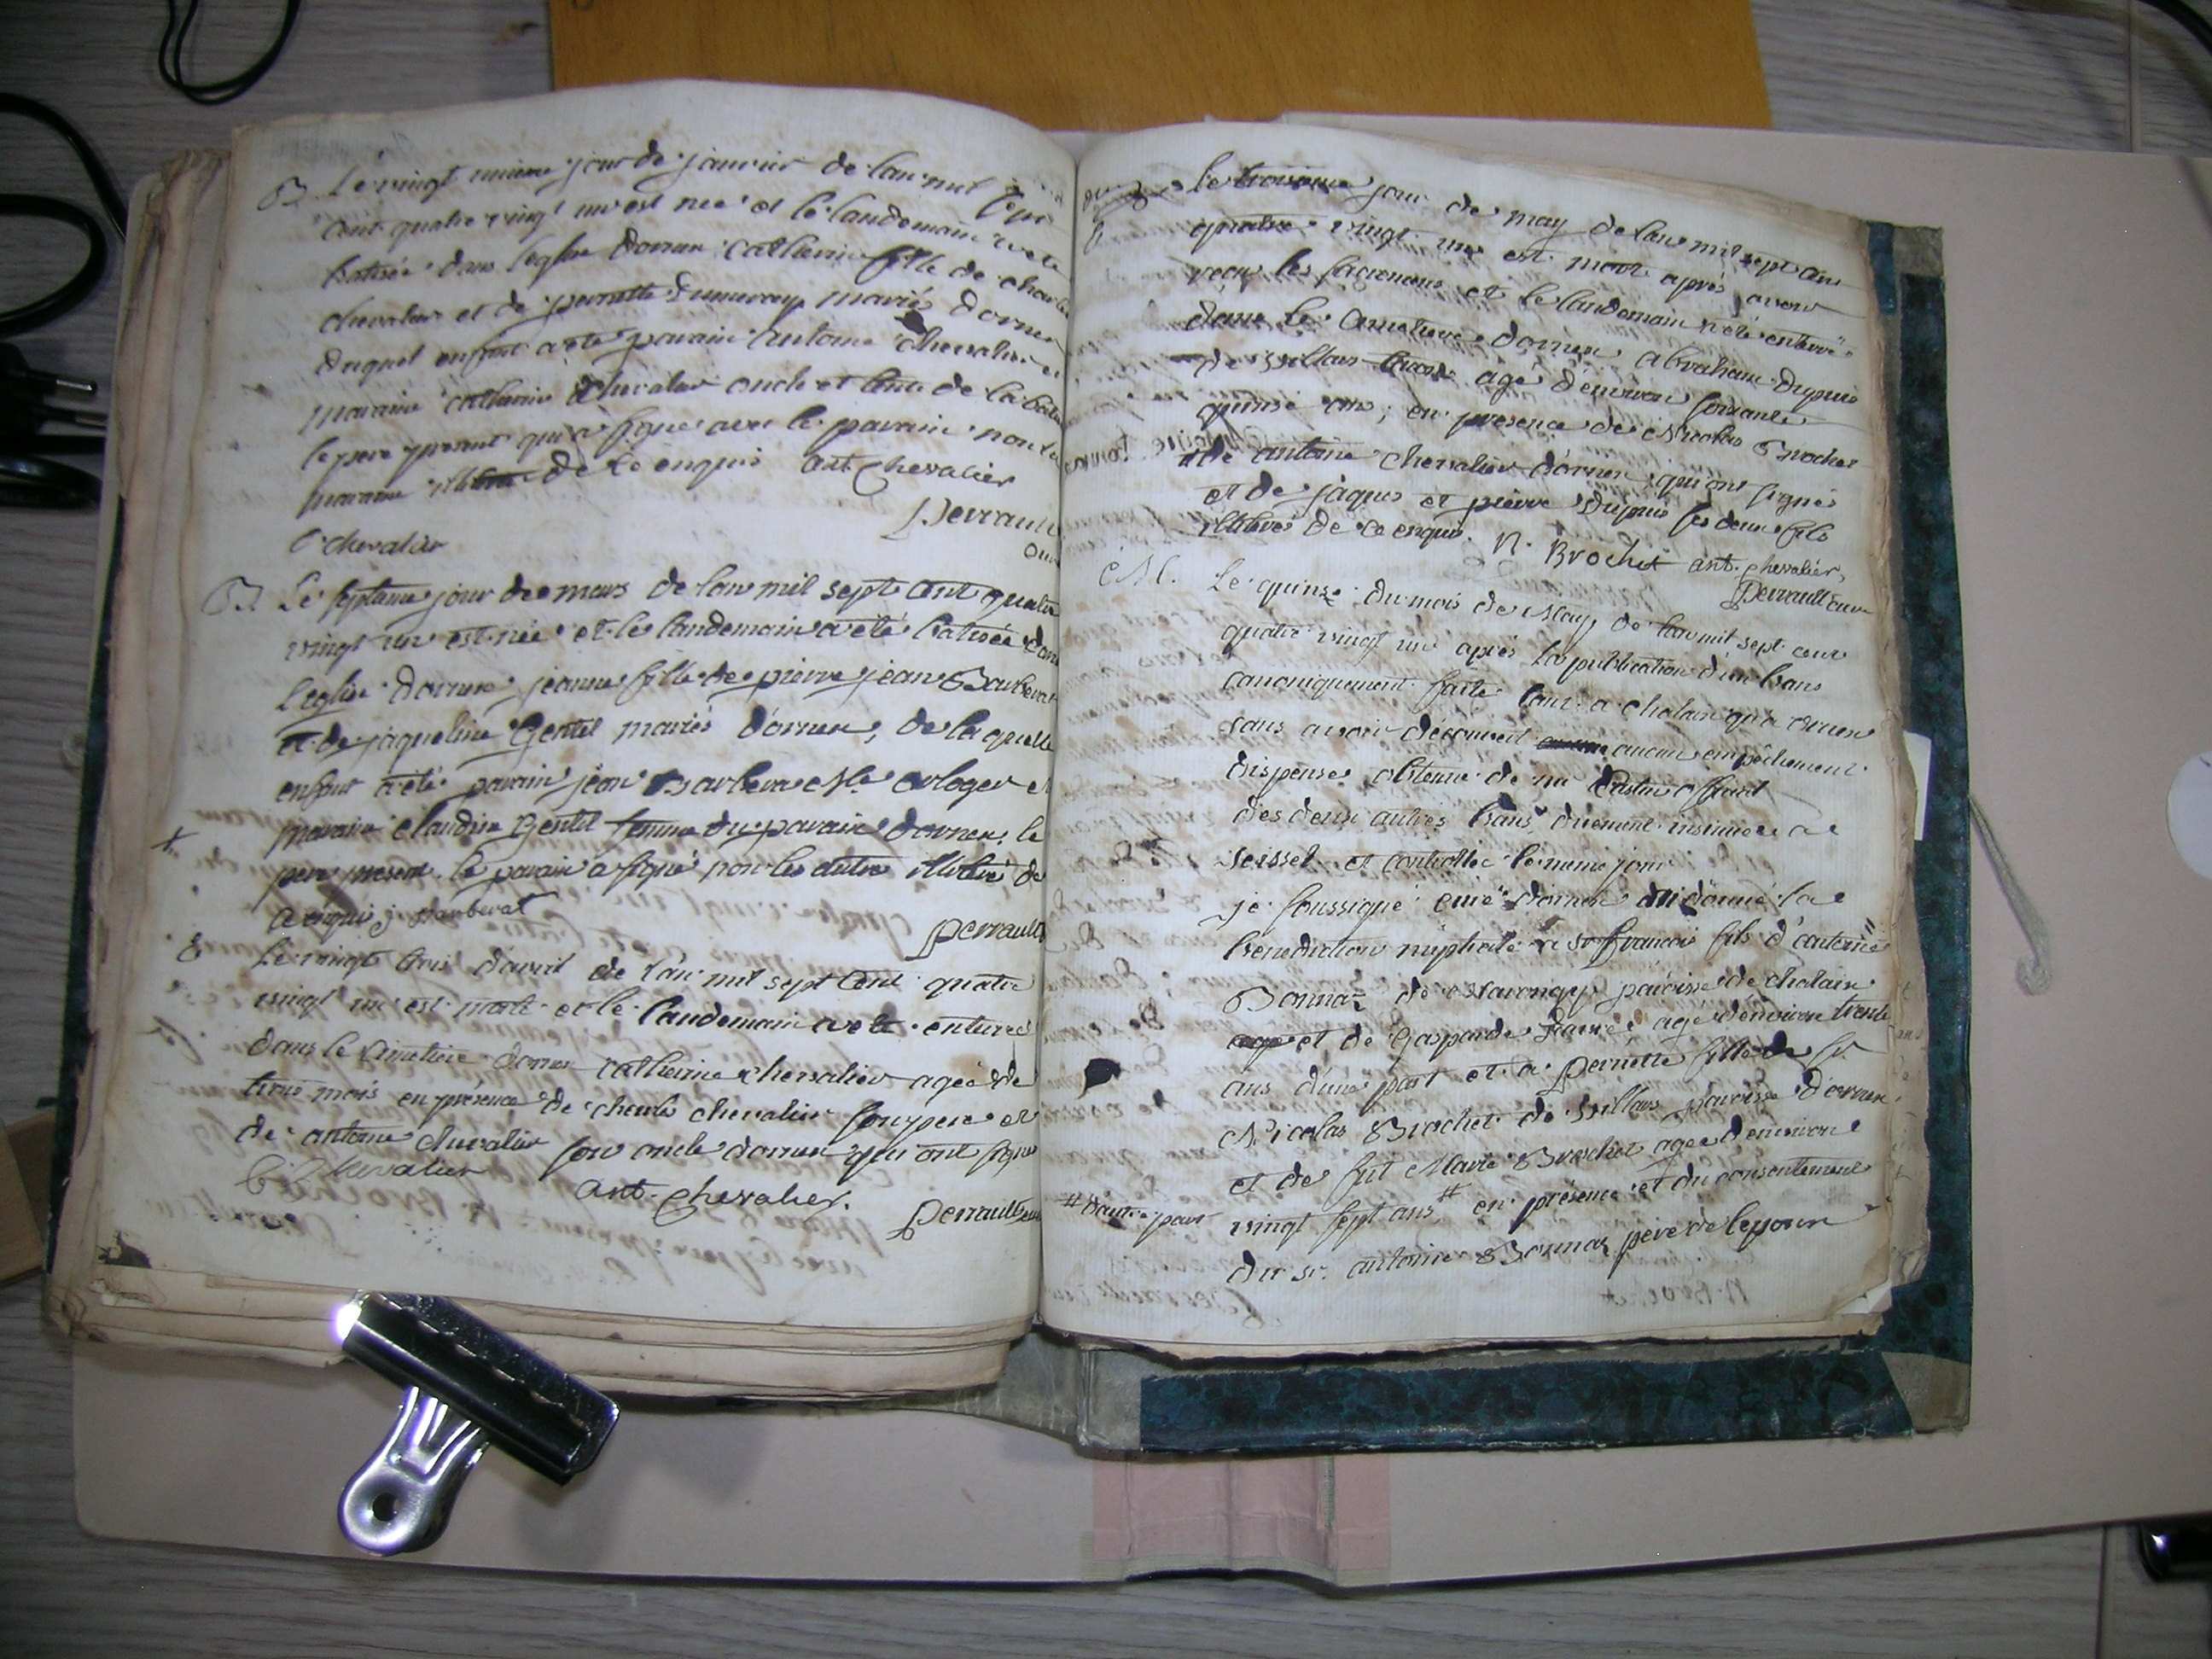 B. Le vingt unieme jour de janvier de lan mil sept
cent quatre vingt un est née et le landemain a été
batisée dans leglise dornex catherine fille de charles
chevalier et de pernette mariés dornex
duquel enfant a été parain antoine chevalier et
maraine catherine chevalier oncle et tante de la
le pere present qui a signé avec le parain non la
maraine illitrée de ce enquis ant. chevalier
Perrault
C chevalier curé
B. Le septieme jour de mars de lan mil sept cent quatre
vingt un est née et le landemain a été batisée dans
leglise dornex jeanne fille de pierre jean Barberat
et de jaqueline Gentil mariés dornex, de laquelle
enfant a été parain jean Barberat Me orloger et
maraine claudine Gentil femme du parain dornex, le
pere present. le parain a signé non les autres illitrés de
ce enquis j. barberat
Perrault
Le vingt trois davril de lan mil sept cent quatre
vingt un est morte et le landemain a été enterrée
dans le cimetiere dornex catherine chevalier agée de
trois mois en présence de charle chevalier son pere et
de antoine chevalier son oncle dornex qui ont signé
C. chevalier ant. chevalier.
Perrault curé
le troisieme jour de may de lan mil sept cent
quatre vingt un est mort après avoir
reçu les sacremens et le landemain a été enterré
dans le cimetiere dornex abraham Dupuis
de Villars agé d'environ soixante
quinse ans, en presence de Nicolas Brochet
de antoine chevalier dornex qui ont signés
et de jaques et pierre Dupuis ses deux fils
illitrés de ce enquis. N. Brochet ant. chevalier,
Perrault curé
M. Le quinse du mois de May de lan mil sept cent
quatre vingt un après la publication d'un bans
canoniquement faite tant a chalaix qu'a ornex
sans avoir découvert aucun empêchement
dispense obtenue de
des deux autres bans duement insinuée a
seissel et controllée le meme jour
je soussigné curé dornex ai donné la
benediction nuptiale a sr francois fils d'antoine
Bonnaz de paroisse de chalaix
et de Gasparde agé denviron trente
ans d'une part et a Pernette fille de sr
Nicolas Brochet de Villars paroisse dornex
et de fut Marie Brochet agée denviron
vingt sept ans # en présence et du consentement
# d'autre part
du sr. antoine Bonnaz pere de lepoux